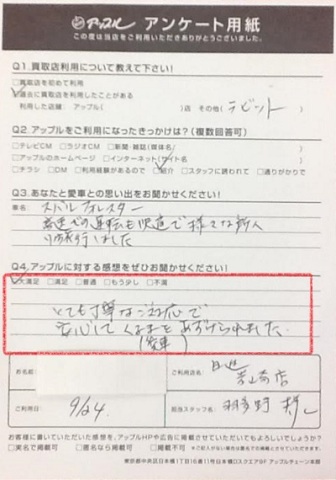 アップル アンケート用紙
この度は当店をご利用いただきありがとうございました。
Q1.買取店利用について教えて下さい!
□買取店を初めて利用
□過去に買取店を利用したことがある
利用した店舗: アップル( )店 その他( ラビット )
Q2.アップルをご利用になったきっかけは?(複数回答可)
□テレビCM □ラジオCM □新聞・雑誌(媒体名 )
□アップルのホームページ □インターネット(サイト名 )
□チラシ □DM □利用経験があるので □紹介 □スタッフに誘われて □通りがかりで
Q3.あなたと愛車との思い出をお聞かせください!
車名: スバルフォレスター
高速での運転も快適で様々な所へ
旅行しました
Q4.アップルに対する感想をぜひお聞かせください!
□大満足 □満足 □普通 □もう少し □不満
とても丁寧なご対応で
安心してくるまをあずけられました。
(愛車)
お名前
ご利用店名:
店
ご利用日: 9/24
担当スタッフ名:
お客様に書いていただいた感想を、アップルHPや広告に掲載させていただいてもよろしいでしょうか?
□実名で掲載可 □匿名なら掲載可 □掲載不可